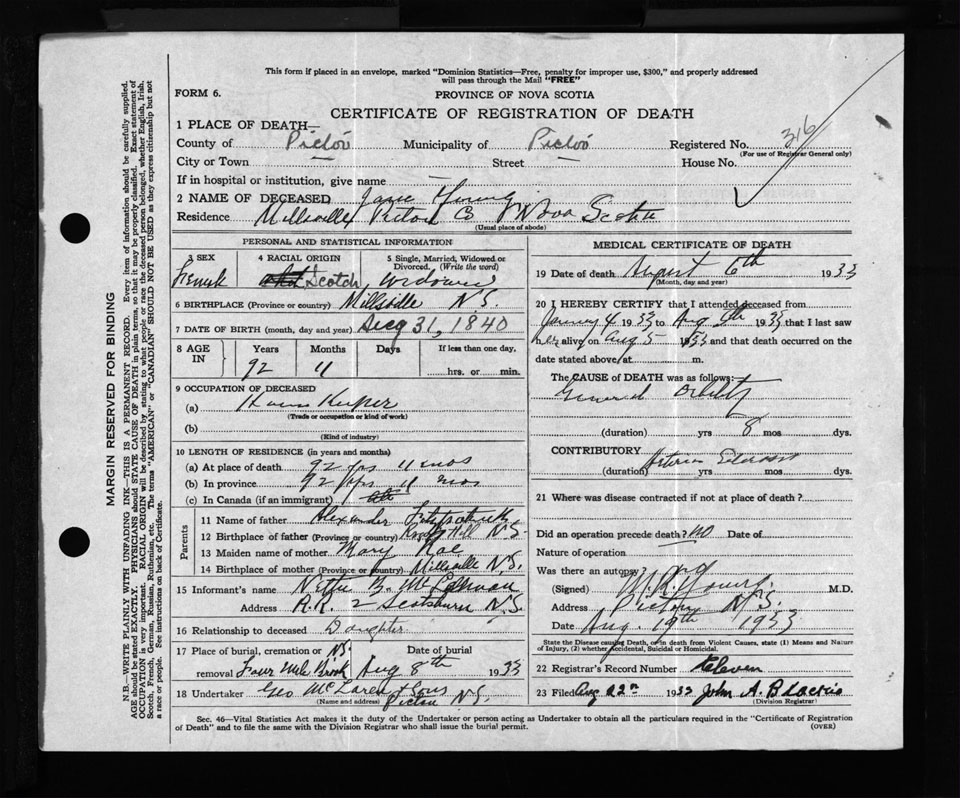 This form if placed in an envelope, marked "Dominion Statistics—Free, penalty for improper use, $300," and properly addressed
will pass through the Mail "FREE"
FORM 6.
PROVINCE OF NOVA SCOTIA
CERTIFICATE OF REGISTRATION OF DEATH
1 PLACE OF DEATH—
County of Pictou Municipality of Pictou Registered No. 316
(For use of Registrar General only)
City or Town — Street — House No.
If in hospital or institution, give name —
2 NAME OF DECEASED Jane Young
Residence Millsville Pictou Co Nova Scotia
(Usual place of abode)
PERSONAL AND STATISTICAL INFORMATION
3 SEX 4 RACIAL ORIGIN 5 Single, Married, Widowed or Divorced. (Write the word)
Female Scotch Widowed
6 BIRTHPLACE (Province or country) Millsville N.S.
7 DATE OF BIRTH (month, day and year) Dec 31, 1840
8 AGE IN Years Months Days If less than one day,
92 11 hrs. or min.
9 OCCUPATION OF DECEASED
(a) House Keeper
(Trade or occupation or kind of work)
(b)
(Kind of industry)
10 LENGTH OF RESIDENCE (in years and months)
(a) At place of death 92 yrs 11 mos
(b) In province 92 yrs 11 mos
(c) In Canada (if an immigrant)
Parents
11 Name of father Alexander Fitzpatrick
12 Birthplace of father (Province or country) Hill N.S.
13 Maiden name of mother Mary Rae
14 Birthplace of mother (Province or country) Millsville N.S.
15 Informant's name Nettie B.
Address R.R. 2 Scotsburn N.S.
16 Relationship to deceased Daughter
17 Place of burial, cremation or N.S. Date of burial
removal Four Mile Brook Aug 8th 1933
18 Undertaker Geo McLaren & Sons
(Name and address) Pictou N.S.
MEDICAL CERTIFICATE OF DEATH
19 Date of death August 6th 1933
(Month, day and year)
20 I HEREBY CERTIFY that I attended deceased from
January 4 1933 to Aug 5th 1933 that I last saw
her alive on Aug 5 1933 and that death occurred on the
date stated above at m.
The CAUSE of DEATH was as follows:
General Debility
(duration) yrs 8 mos dys.
CONTRIBUTORY
(duration) Arterio Sclerosis yrs mos dys.
21 Where was disease contracted if not at place of death?
Did an operation precede death? no Date of
Nature of operation
Was there an autopsy? no
(Signed) M.D.
Address Pictou N.S.
Date Aug. 19th 1933
State the Disease causing Death, or in death from Violent Causes, state (1) Means and Nature
of Injury, (2) whether Accidental, Suicidal or Homicidal.
22 Registrar's Record Number Eleven
23 Filed Aug 22nd 1933 John A. Blackie
(Division Registrar)
Sec. 46—Vital Statistics Act makes it the duty of the Undertaker or person acting as Undertaker to obtain all the particulars required in the "Certificate of Registration
of Death" and to file the same with the Division Registrar who shall issue the burial permit. (OVER)
MARGIN RESERVED FOR BINDING
N.B.—WRITE PLAINLY WITH UNFADING INK—THIS IS A PERMANENT RECORD. Every item of information should be carefully supplied.
AGE should be stated EXACTLY. PHYSICIANS should STATE CAUSE OF DEATH in plain terms, so that it may be properly classified. Exact statement of
OCCUPATION is very important. RACIAL ORIGIN will be described by stating to what people or race the deceased person belonged, whether English, Irish,
Scotch, French, German, Russian, Ruthenian, etc. The terms "AMERICAN" or "CANADIAN" SHOULD NOT BE USED as they express citizenship but not
a race or people. See instructions on back of Certificate.